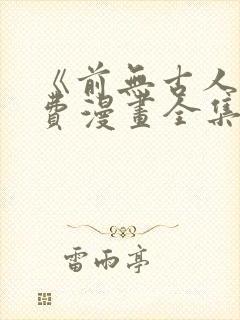 《前無古人
費漫畫全集
雷雨亭